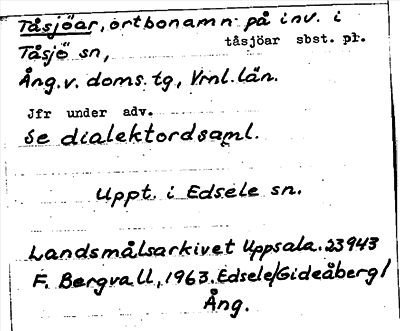 Tåsjöar, ortbonamn på inv. i
tåsjöar sbst. pl.
Tåsjö sn,
Ång. v. doms. tg, Vrnl. län.
Jfr under adv.
Se dialektordsaml.
Uppt. i Edsele sn.
Landsmålsarkivet Uppsala. 23943
F. Bergvall, 1963. Edsele/Gideåberg/
Ång.